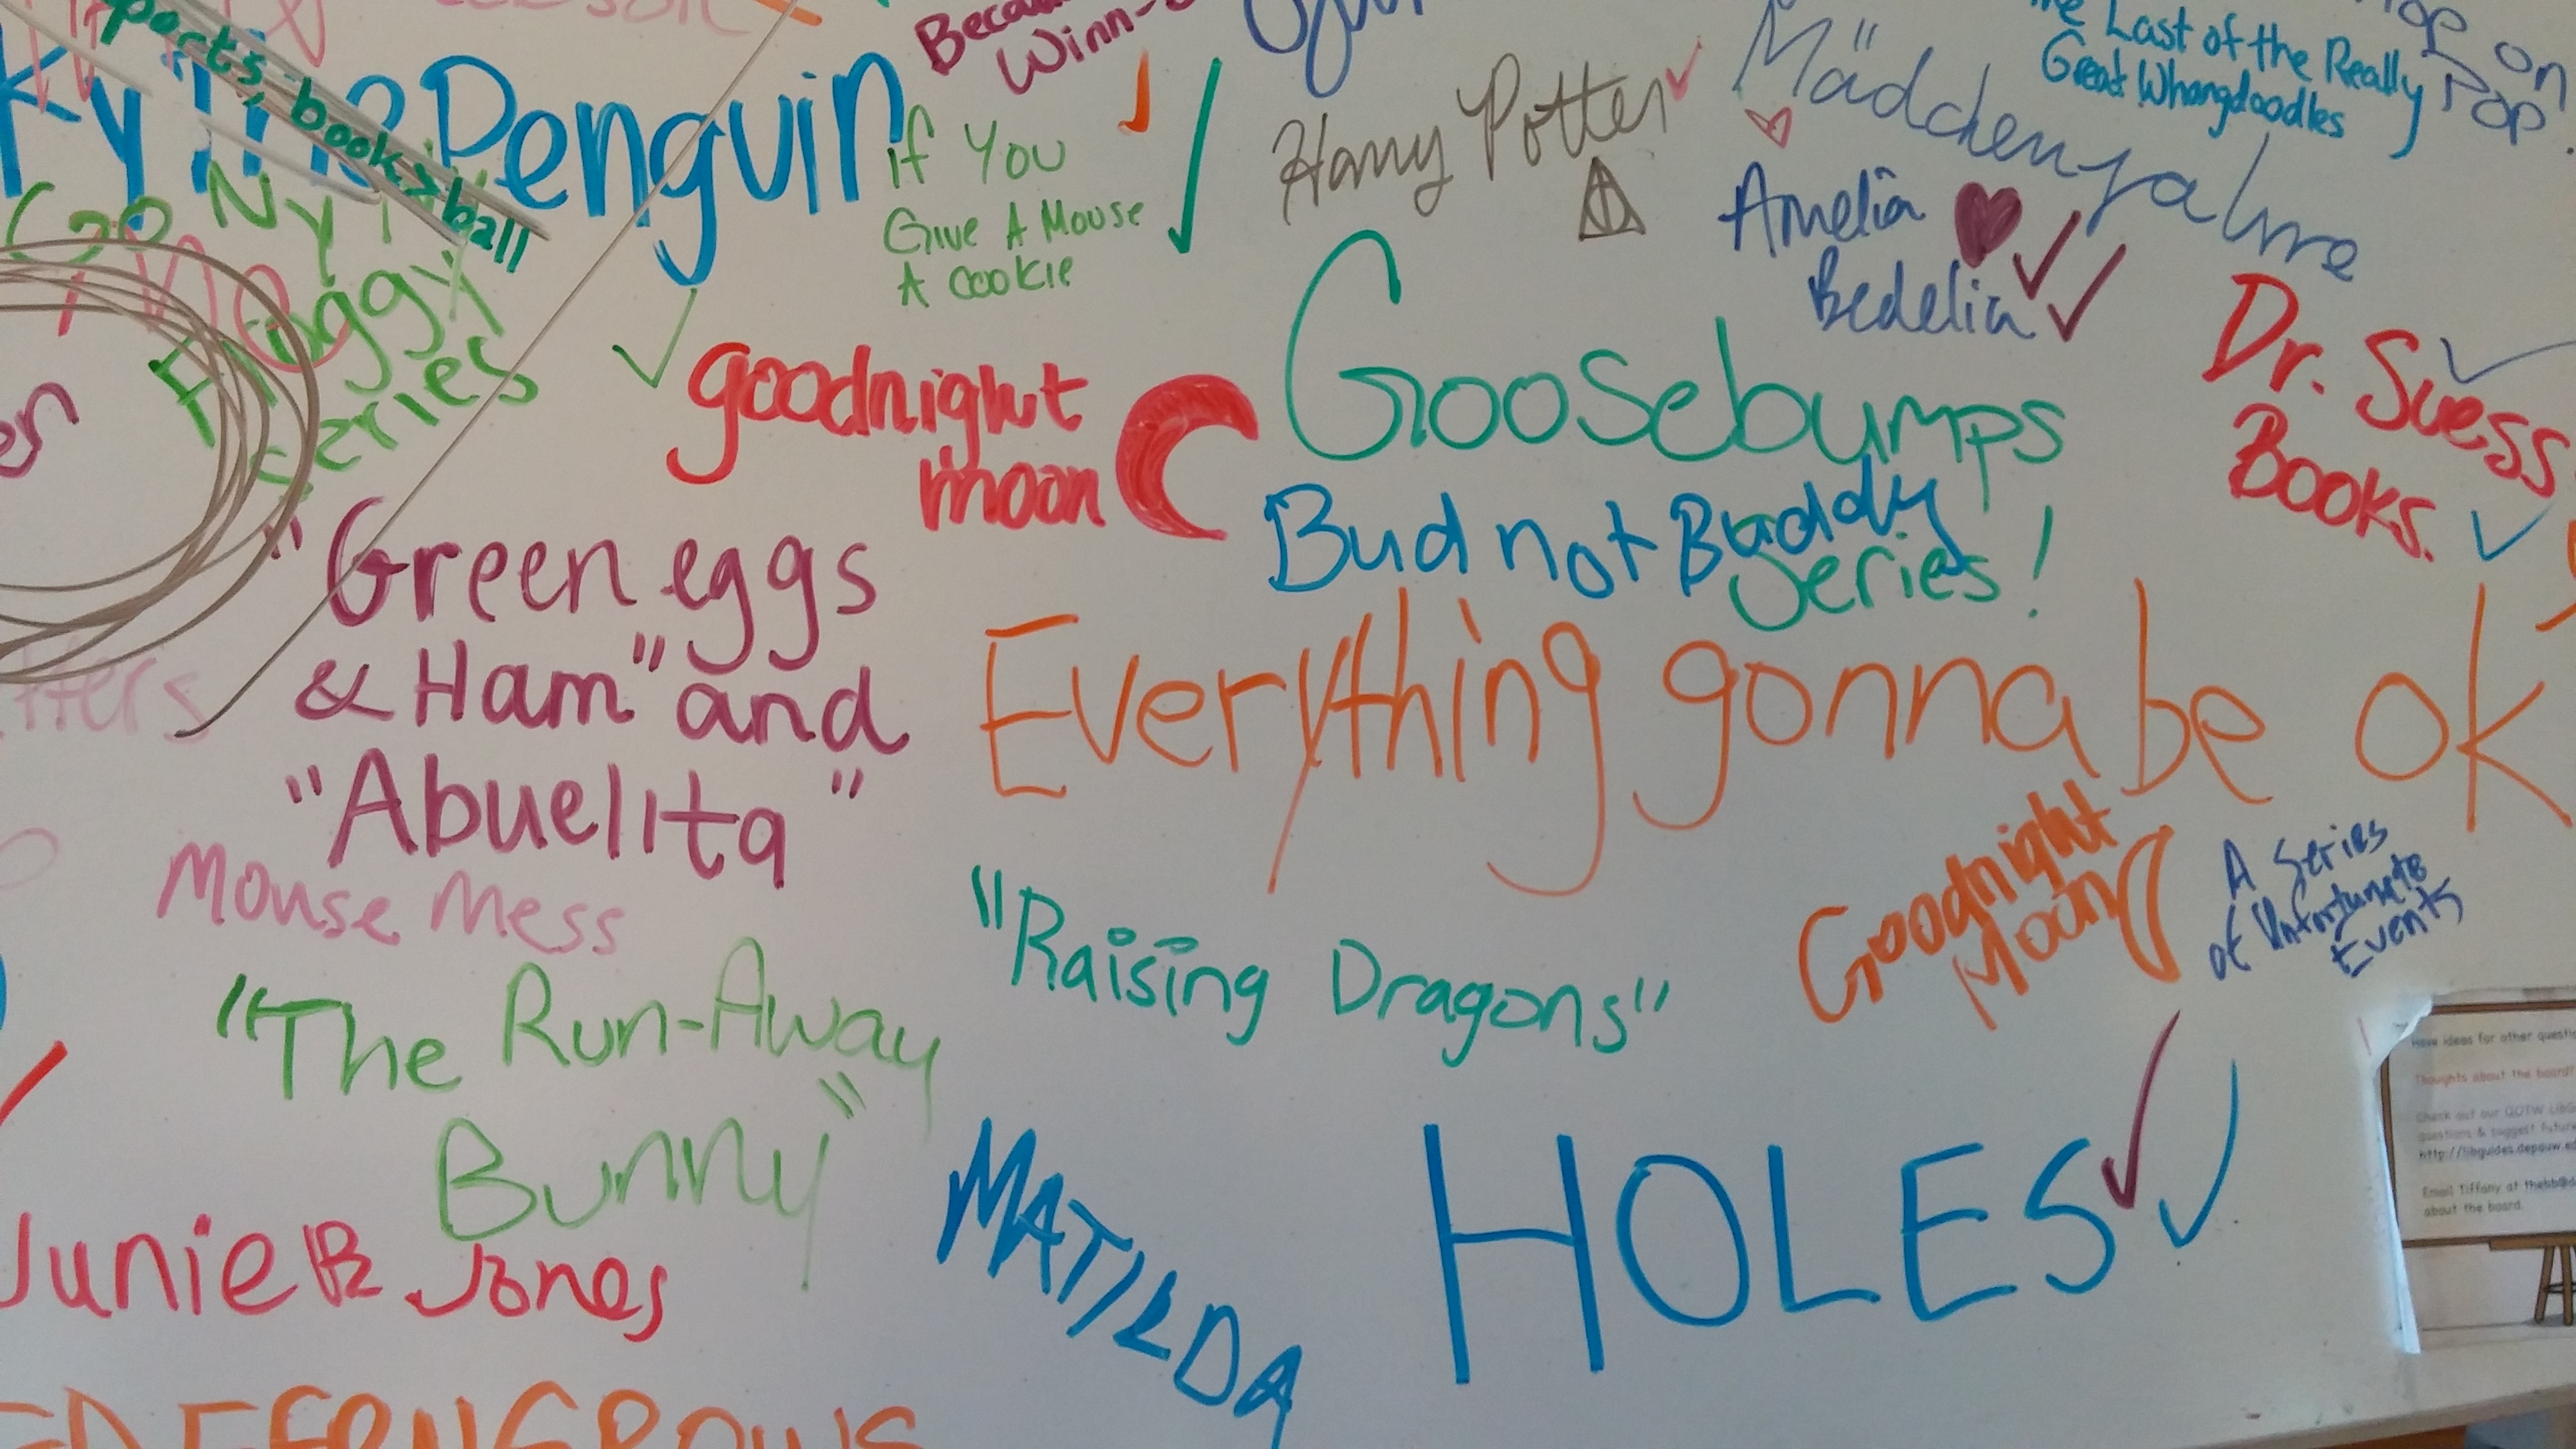 Winn-
the Penguin
ports books ball
If You
Give A Mouse
A cookie
Harry Potter
Mädchenjahre
Last of the Really
Great Whangdoodles
Hop on
Pop.
Amelia
Bedelia
Froggy
Series
goodnight
moon
Goosebumps
Series!
Bud not Buddy
Dr. Suess
Books.
"Green eggs
& Ham" and
"Abuelita"
Everything gonna be ok
Mouse Mess
"The Run-Away
Bunny"
"Raising Dragons"
Goodnight
Moon
A Series
of Unfortunate
Events
Junie B. Jones
MATILDA
HOLES
Have ideas for other
Thoughts about the board?
Check out our QOTW
questions & suggest
http://libguides.depauw.
Email Tiffany at
about the board.